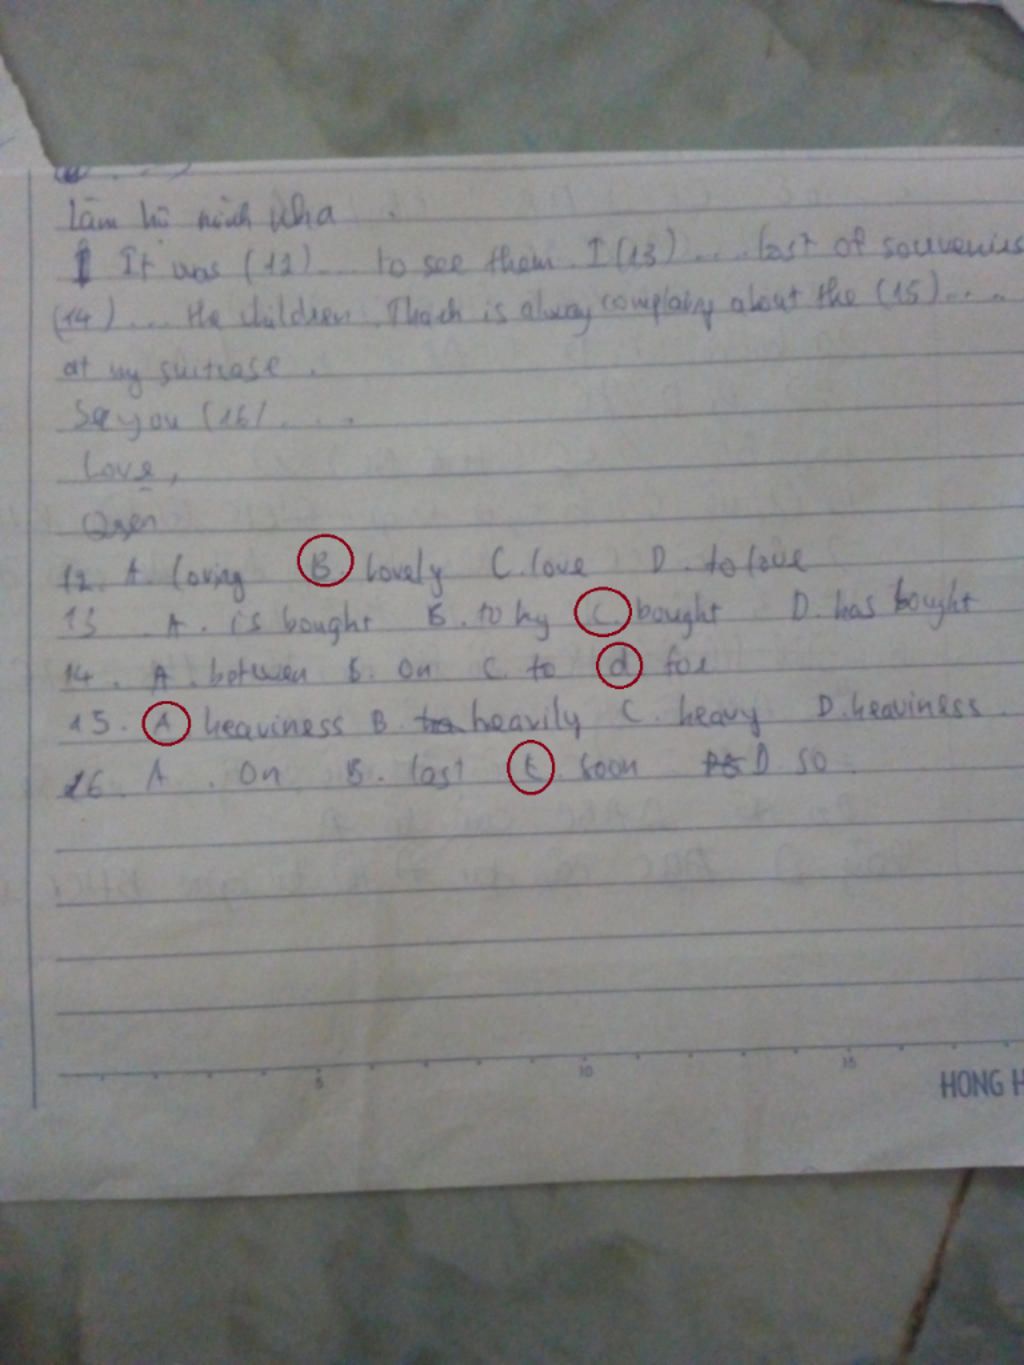 làm hộ mình nha
It was (12).... to see them. I (13).... last of souvenirs
(14).... the children. Thach is alway complainy about the (15)....
at my suitcase.
See you (16)....
Love,
12. A. loving B lovely C. love D. to love
13 A. is bought B. to by C. bought D. has bought
14. A. between B. on C. to d for
15. A heaviness B. heavily C. heavy D. heaviness
16. A. On B. last C soon D so
5 10 15
HONG H